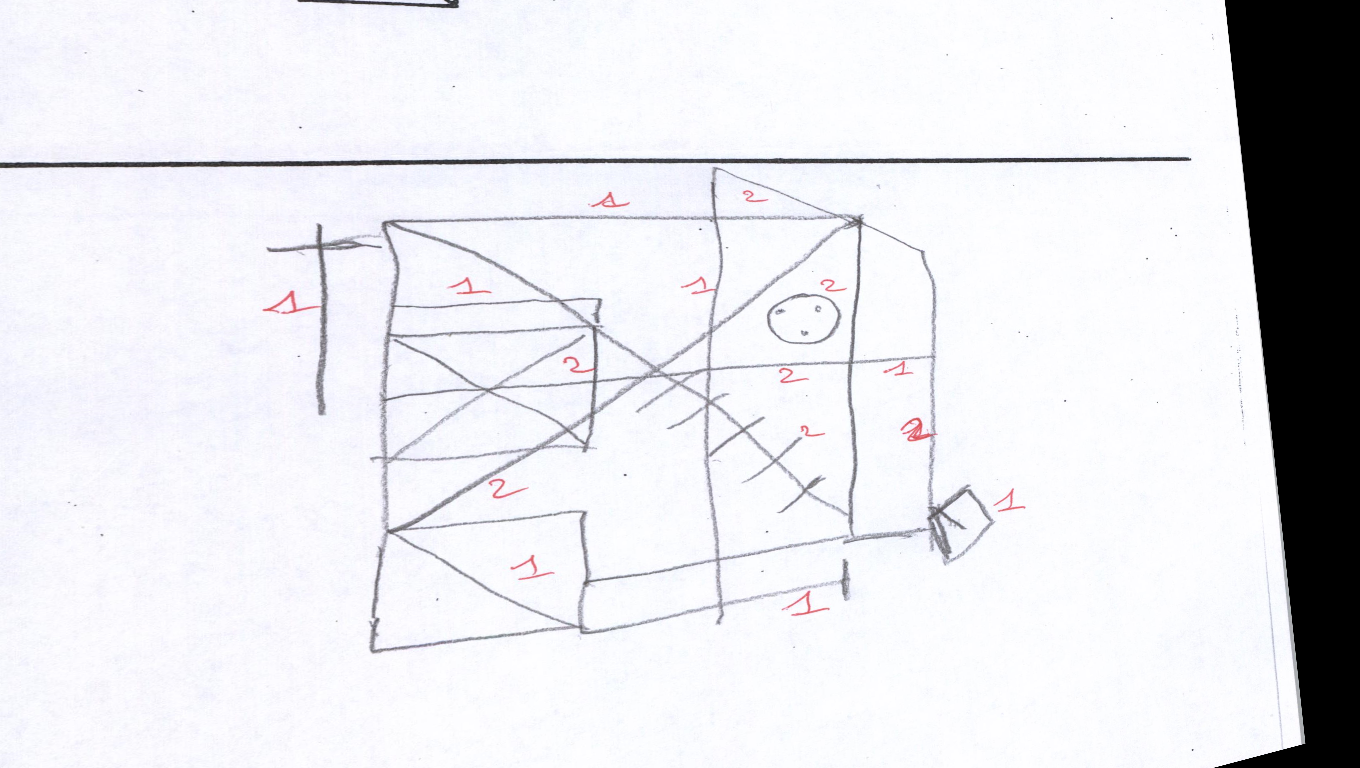 1 2
1 1 1 2
2 2 1
2 2
2 1
1
1